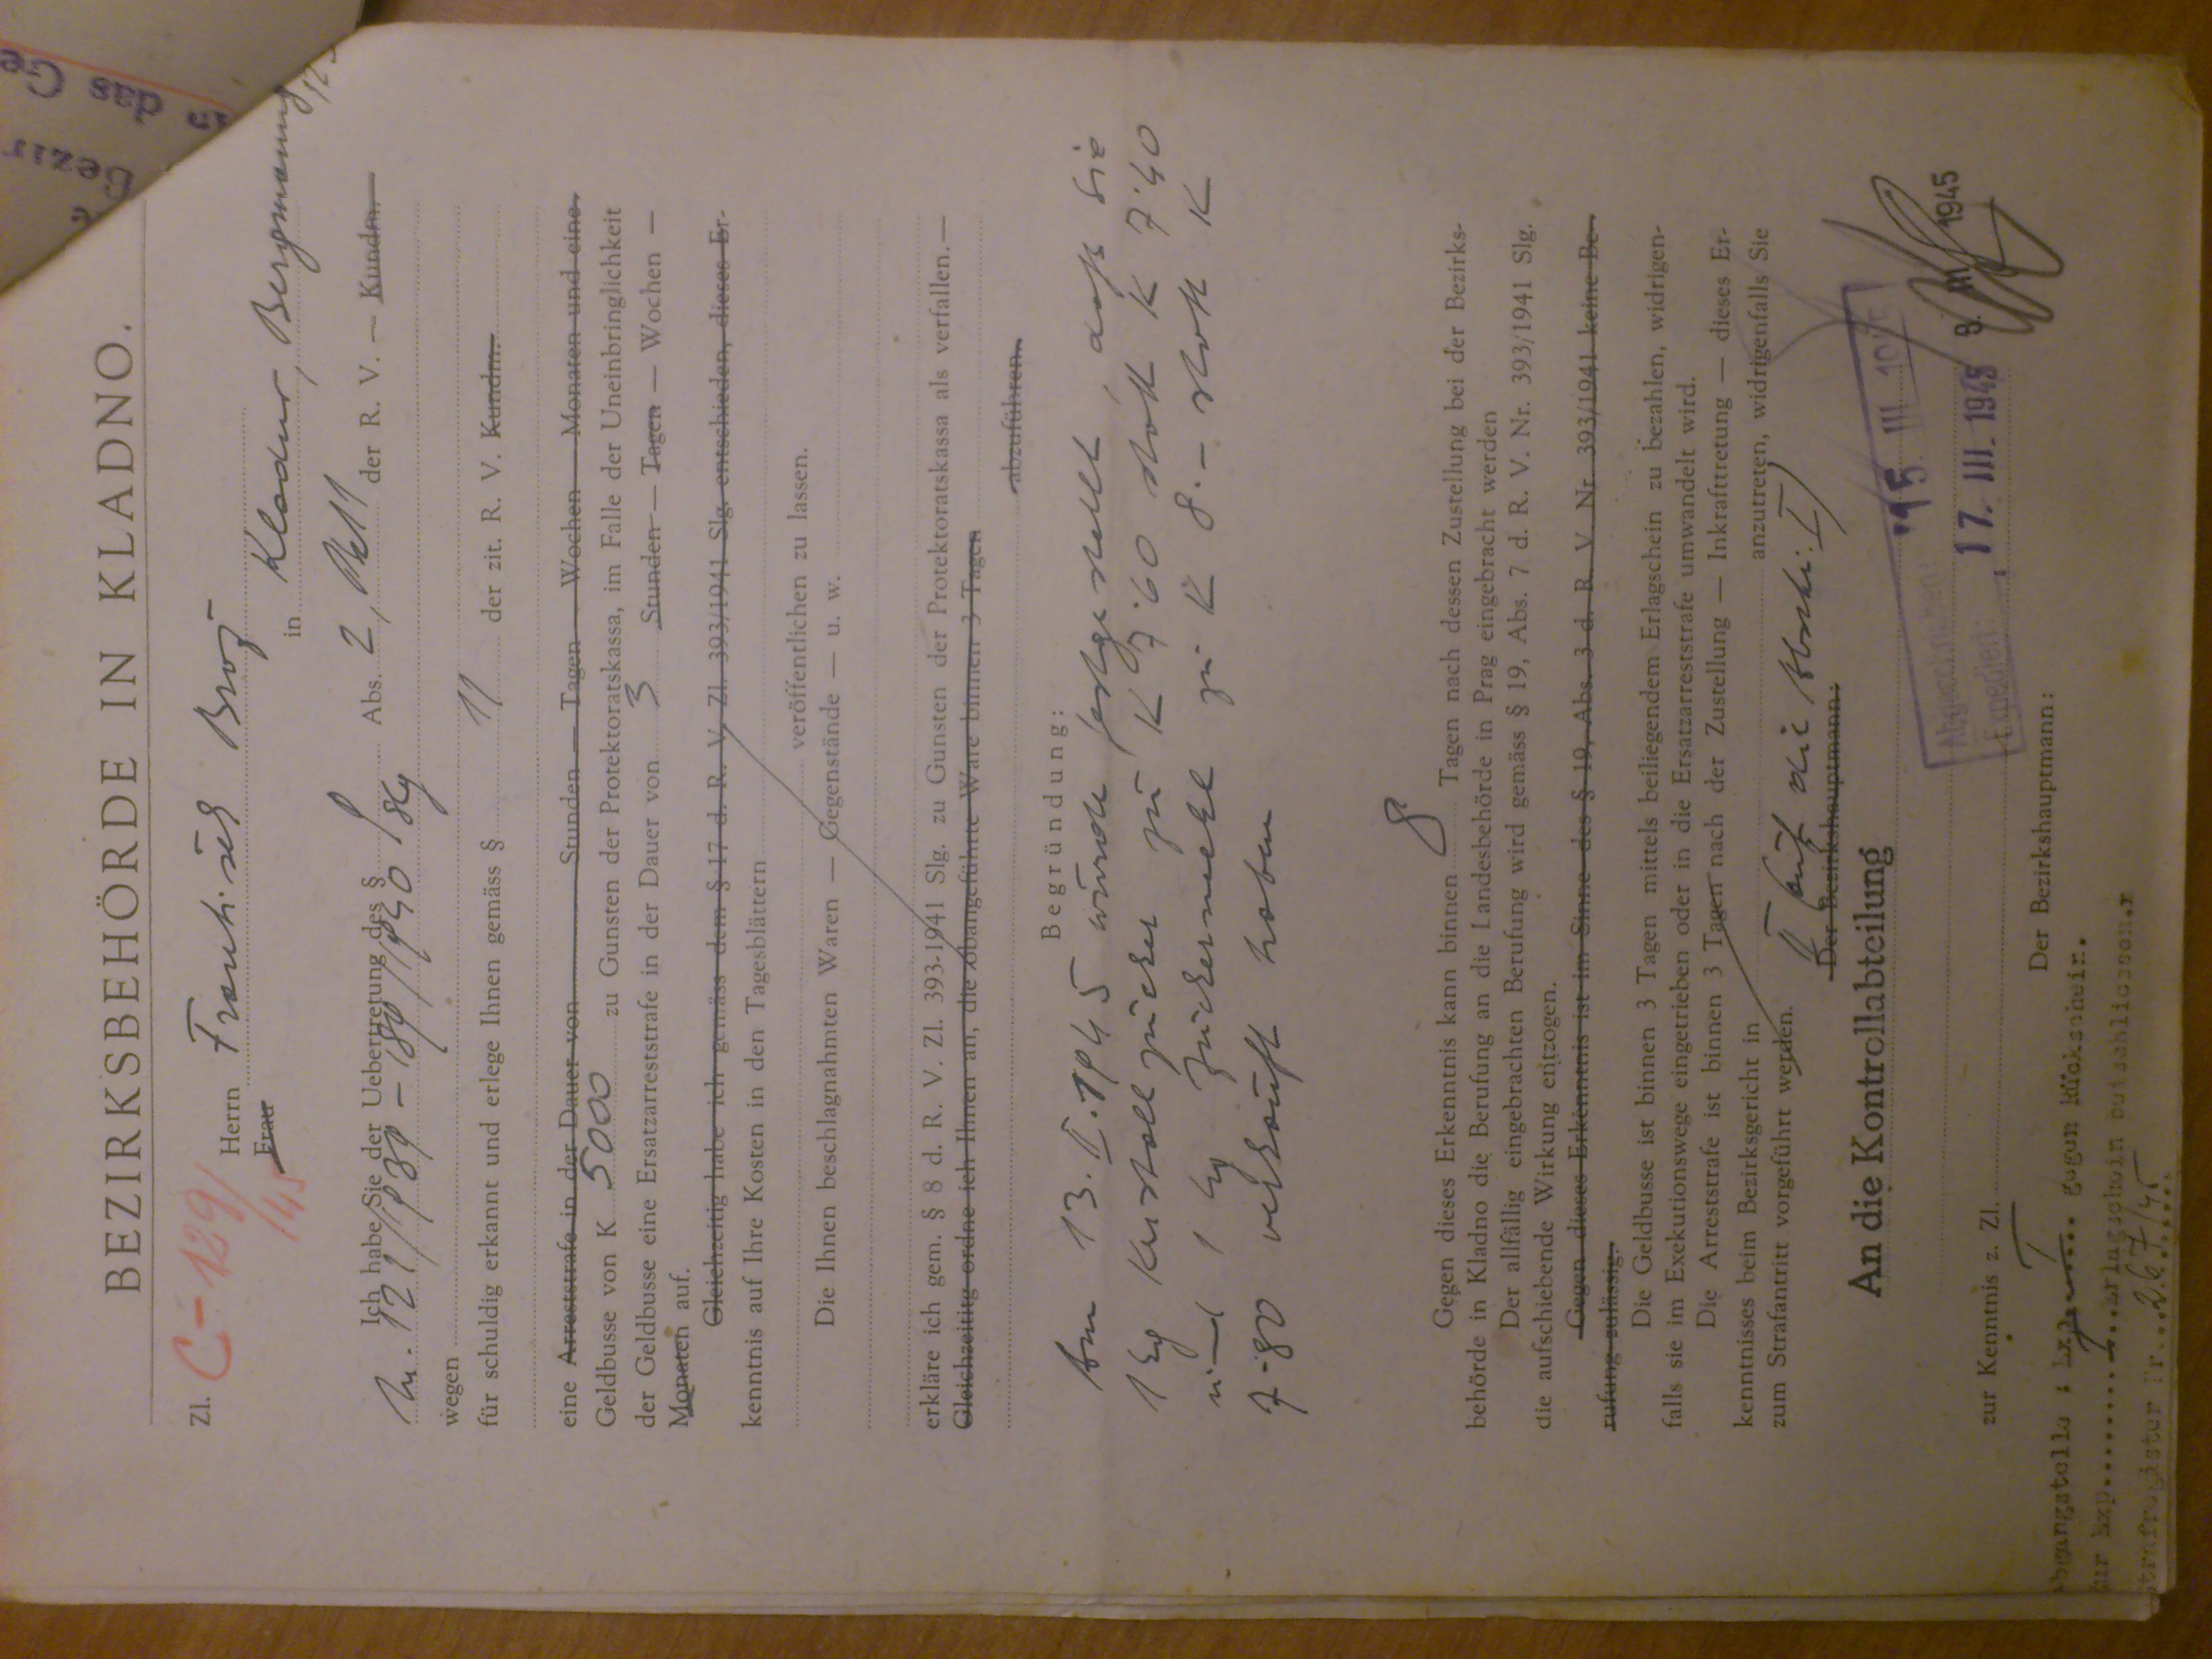 Bezir
in das Ge
BEZIRKSBEHÖRDE IN KLADNO.
Zl. C-129/
/45
Herrn František Brož
Frau
in Kladno, Bergmanng
Ich habe Sie der Uebertretung des § 9 Abs. 2, der R. V. — Kundm.
Nr. 121/939 - 189/1940 Slg
wegen
für schuldig erkannt und erlege Ihnen gemäss § 11 der zit. R. V. Kundm.
eine Arreststrafe in der Dauer von Stunden — Tagen — Wochen — Monaten und eine
Geldbusse von K 5000 zu Gunsten der Protektoratskassa, im Falle der Uneinbringlichkeit
der Geldbusse eine Ersatzarreststrafe in der Dauer von 3 Stunden — Tagen — Wochen —
Monaten auf.
Gleichzeitig habe ich gemäss dem § 17 d. R. V. Zl. 393/1941 Slg. entschieden, dieses Er-
kenntnis auf Ihre Kosten in den Tagesblättern
veröffentlichen zu lassen.
Die Ihnen beschlagnahmten Waren — Gegenstände — u. w.
erkläre ich gem. § 8 d. R. V. Zl. 393-1941 Slg. zu Gunsten der Protektoratskassa als verfallen.—
Gleichzeititg ordne ich Ihnen an, die obangeführte Ware binnen 3 Tagen
abzuführen.
Begründung:
Am 13. II. 1945 wurde festgestellt, daß Sie
1 kg Kristallzucker zu K 7·60 statt K 7·40
und 1 kg Zuckermehl zu K 8.- statt K
7·80 verkauft haben
Gegen dieses Erkenntnis kann binnen 8 Tagen nach dessen Zustellung bei der Bezirks-
behörde in Kladno die Berufung an die Landesbehörde in Prag eingebracht werden
Der allfällig eingebrachten Berufung wird gemäss § 19, Abs. 7 d. R. V. Nr. 393/1941 Slg.
die aufschiebende Wirkung entzogen.
Gegen dieses Erkenntnis ist im Sinne des § 19, Abs. 3 d. R. V. Nr. 393/1941 keine Be-
rufung zulässig.
Die Geldbusse ist binnen 3 Tagen mittels beiliegendem Erlagschein zu bezahlen, widrigen-
falls sie im Exekutionswege eingetrieben oder in die Ersatzarreststrafe umwandelt wird.
Die Arreststrafe ist binnen 3 Tagen nach der Zustellung — Inkrafttretung — dieses Er-
kenntnisses beim Bezirksgericht in anzutreten, widrigenfalls Sie
zum Strafantritt vorgeführt werden.
II (auf die Abschr. I)
Der Bezirkshauptmann:
An die Kontrollabteilung
Abgeschrieben: 15. III. 1945
Expediert: 17. III. 1945
9. III 1945
zur Kenntnis z. Zl.
Der Bezirkshauptmann:
Abgangstelle : Exp. I gegen Rückschein.
Zur Exp. I Erlagschein beischliessen.
Strafregister Nr. 267/45